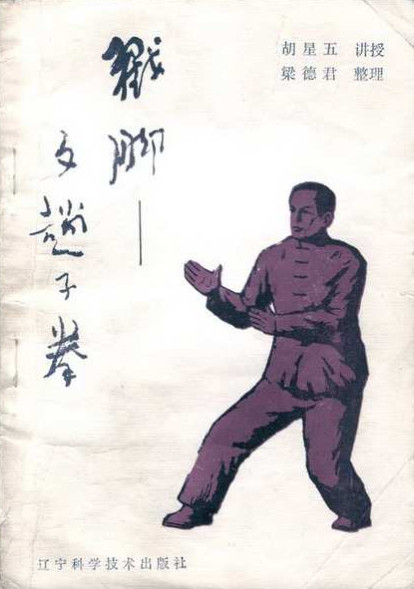 胡星五 讲授
梁德君 整理
戳脚——
文赵子拳
辽宁科学技术出版社